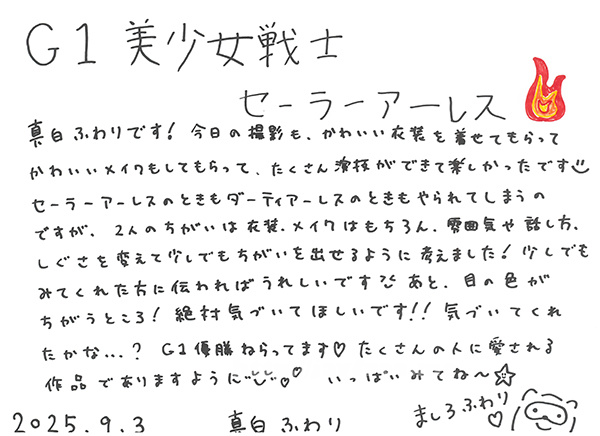 G1 美少女戦士
セーラーアーレス
真白ふわりです! 今日の撮影も、かわいい衣装を着せてもらって
かわいいメイクもしてもらって、たくさん演技ができて楽しかったです
セーラーアーレスのときもダーティアーレスのときもやられてしまうの
ですが、2人のちがいは衣装、メイクはもちろん、雰囲気や話し方、
しぐさを変えて少しでもちがいを出せるように考えました! 少しでも
みてくれた方に伝わればうれしいです あと、目の色が
ちがうところ! 絶対気づいてほしいです!! 気づいてくれ
たかな...? G1優勝ねらってます♡ たくさんの人に愛される
作品でありますように♡♡ いっぱいみてね〜☆
2025.9.3 真白ふわり ましろふわり♡